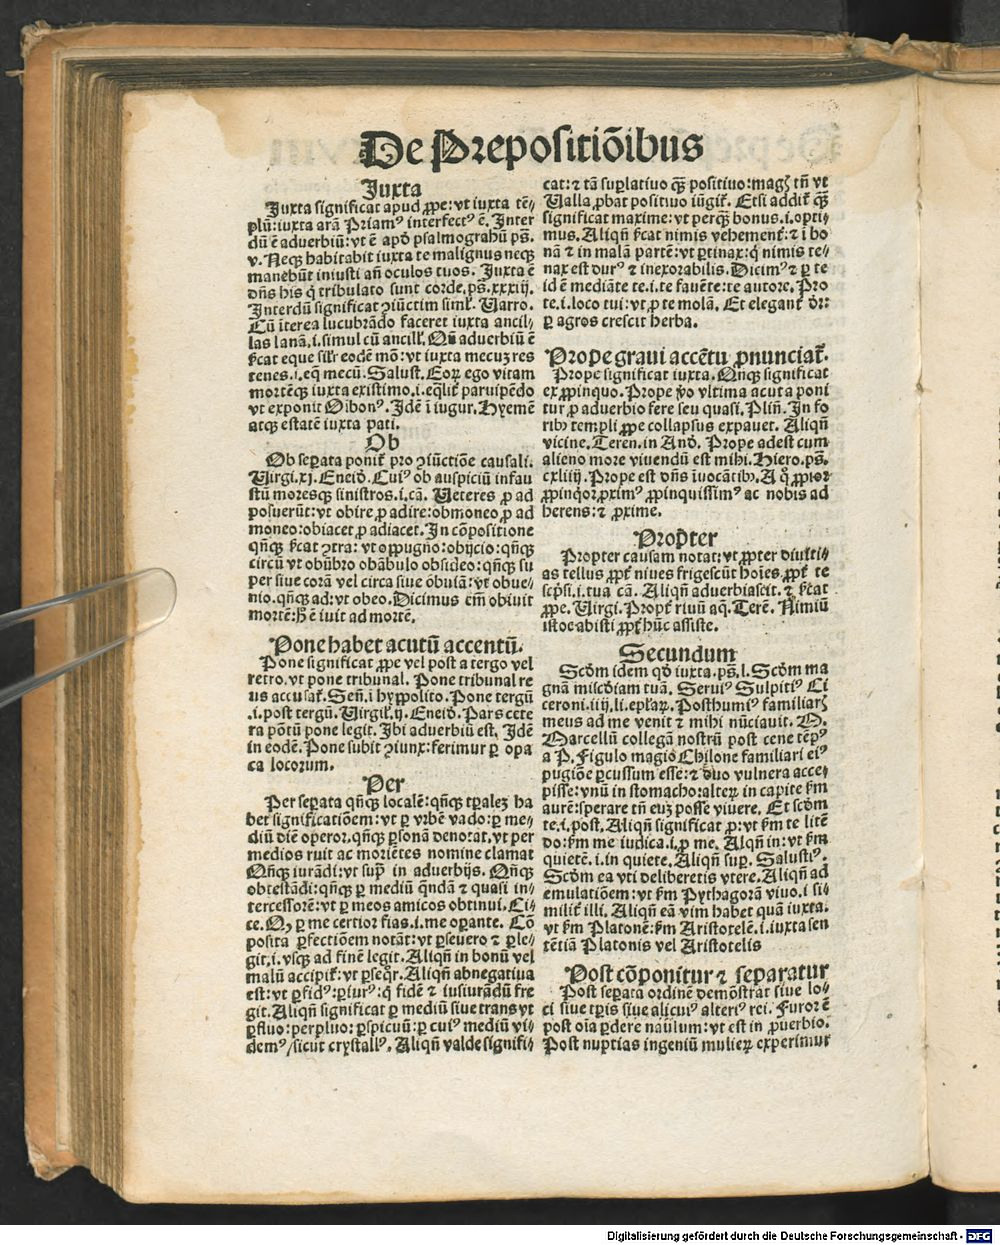 De Prepositiõibus
Juxta
Juxta significat apud ꝓpe: vt iuxta tē⸗
plū: iuxta arā Priamꝰ interfectꝰ ē. Inter
dū ē aduerbiū: vt ē apđ psalmographū ps̄.
v. Neqꝫ habitabit iuxta te malignus neqꝫ
manebūt iniusti añ oculos tuos. Juxta ē
dñs his ꝗ tribulato sunt corde. ps̄. xxxiij.
Interdū significat ꝯiūctim simƚ. Varro.
Cū īterea lucubrādo faceret iuxta ancil⸗
las lanā. i. simul cū ancilƚ. Qñ aduerbiū ē
ſcat eque silr̄ eodē mō: vt iuxta mecuꝫ res
tenes. i. eq̄ mecū. Salust. Eoꝝ ego vitam
mortēqꝫ iuxta existimo. i. eq̄lit̄ paruipēdo
vt exponit Oibonꝰ. Idē ī iugur. Hyemē
atqꝫ estatē iuxta pati.
Ob
Ob seꝑata ponit̄ pro ꝯiūctiōe causali.
Virgi. xj. Eneiđ. Cuiꝰ ob auspiciū infau
stū moresqꝫ sinistros. i. cā. Veteres ꝓ ad
posuerūt: vt obire ꝓ adire: obmoneo ꝓ ad
moneo: obiacet ꝓ adiacet. In cōpositione
qñqꝫ ſcat ꝯtra: vt oppugno: obijcio: qñqꝫ
circū vt obūbro obābulo obsideo: qñqꝫ su
per siue corā vel circa siue obuiā: vt obue⸗
nio. qñqꝫ ad: vt obeo. Dicimus em̄ obiuit
mortē: ꝧ ē iuit ad mortē.
Pone habet acutū accentū.
Pone significat ꝓpe vel post a tergo vel
retro. vt pone tribunal. Pone tribunal re
us accusat̄. Señ. ī hyppolito. Pone tergū
.i. post tergū. Virgilƚ. ij. Eneiđ. Pars cete
ra pōtū pone legit. Ibi aduerbiū est. Idē
in eodē. Pone subit ꝯiunx: ferimur ꝑ opa
ca locorum.
Per
Per seꝑata qñqꝫ localē: qñqꝫ tꝑaleꝫ ha
bet significatiōem: vt ꝑ vrbē vado: ꝑ me⸗
diū diē operor. qñqꝫ ꝑsonā denotat. vt per
medios ruit ac moriētes nomine clamat
Qñqꝫ iurādi: vt supͣ in aduerbijs. Qñqꝫ
obtestādi: qñqꝫ ꝑ mediū q̄ndā ⁊ quasi in⸗
tercessorē: vt ꝑ meos amicos obtinui. Ci⸗
ce. Qꝫ ꝑ me certior fias. i. me oꝑante. Cō
posita ꝑfectiōem notāt: vt ꝑseuero ⁊ ꝑle⸗
git. i. vsqꝫ ad finē legit. Aliqñ in bonū vel
malū accipit̄: vt ꝑseqr̄. Aliqñ abnegatiua
est: vt ꝑfidꝰ: ꝑiurꝰ: ꝗ fidē ⁊ iusiurādū fre
git. Aliqñ significat ꝑ mediū siue trans vt
ꝑfluo: perpluo: ꝑspicuū: ꝑ cuiꝰ mediū vi⸗
demꝰ/sicut crystallꝰ. Aliqñ valde signifi⸗
cat: ⁊ tā suꝑlatiuo qᷓꝫ positiuo: magꝭ tñ vt
Valla ꝓbat positiuo iūgit̄. Etsi addit̄ qᷓꝫ
significat maxime: vt perqᷓꝫ bonus. i. opti⸗
mus. Aliqñ ſcat nimis vehement̄: ⁊ ī bo
nā ⁊ in malā partē: vt ꝑtinax: ꝗ nimis te⸗
nax est durꝰ ⁊ inexorabilis. Dicimꝰ ⁊ ꝑ te
id ē mediāte te. i. te fauēte: te autore. Pro
te. i. loco tui: vt ꝓ te molā. Et elegant̄ dr̄:
ꝑ agros crescit herba.
Prope graui accētu ꝓnunciat̄.
Prope significat iuxta. Qñqꝫ significat
ex ꝓpinquo. Prope ꝟo vltima acuta poni
tur ꝓ aduerbio fere seu quasi. Pliñ. In fo
ribꝰ templi ꝓpe collapsus expauet. Aliqñ
vicine. Teren. in Anđ. Prope adest cum
alieno more viuendū est mihi. Hiero. ps̄.
cxliiij. Prope est dñs īuocātibꝰ. A ꝗ ꝓpior
ꝓpinqor. ꝓximꝰ ꝓpinquissimꝰ ac nobis ad
herens: ⁊ ꝓxime.
Propter
Propter causam notat: vt ꝓpter diuiti⸗
as tellus ꝓpt̄ niues frigescūt hoīes. ꝓpt̄ te
scp̄si. i. tua cā. Aliqñ aduerbiascit. ⁊ ſcat
ꝓpe. Virgi. Propt̄ riuū aq̄. Terē. Nimiū
istoc abisti ꝓpt̄ hūc assiste.
Secundum
Scđm idem qđ iuxta. ps̄. l. Scđm ma
gnā misc̄diam tuā. Seruiꝰ Sulpitiꝰ Ci
ceroni. iiij. li. epƚaꝝ. Posthumiꝰ familiarꝭ
meus ad me venit ⁊ mihi nūciauit. M.
Marcellū collegā nostrū post cene tēpꝰ
a P. Figulo magio Chilone familiari eiꝰ
pugiōe ꝑcussum esse: ⁊ duo vulnera acce⸗
pisse: vnū in stomacho: alteꝝ in capite ẜm
aurē: sperare tñ euꝫ posse viuere. Et scđm
te. i. post. Aliqñ significat ꝓ: vt ẜm te litē
do: ẜm me iudica. i. ꝓ me. Alqñ in: vt ẜm
quietē. i. in quiete. Aliqñ suꝑ. Salustiꝰ.
Scđm ea vti deliberetis vtere. Aliqñ ad
emulatiōem: vt ẜm Pythagorā viuo. i. si⸗
milit̄ illi. Aliqñ eā vim habet quā iuxta.
vt ẜm Platonē: ẜm Aristotelē. i. iuxta sen
tētiā Platonis vel Aristotelis
Post cōponitur ⁊ separatur
Post seꝑata ordinē demōstrat siue lo⸗
ci siue tꝑis siue alicuiꝰ alteriꝰ rei. Furor ē
post oīa ꝑdere naūlum: vt est in ꝓuerbio.
Post nuptias ingeniū mulieꝝ experimur
Digitalisierung gefördert durch die Deutsche Forschungsgemeinschaft - DFG